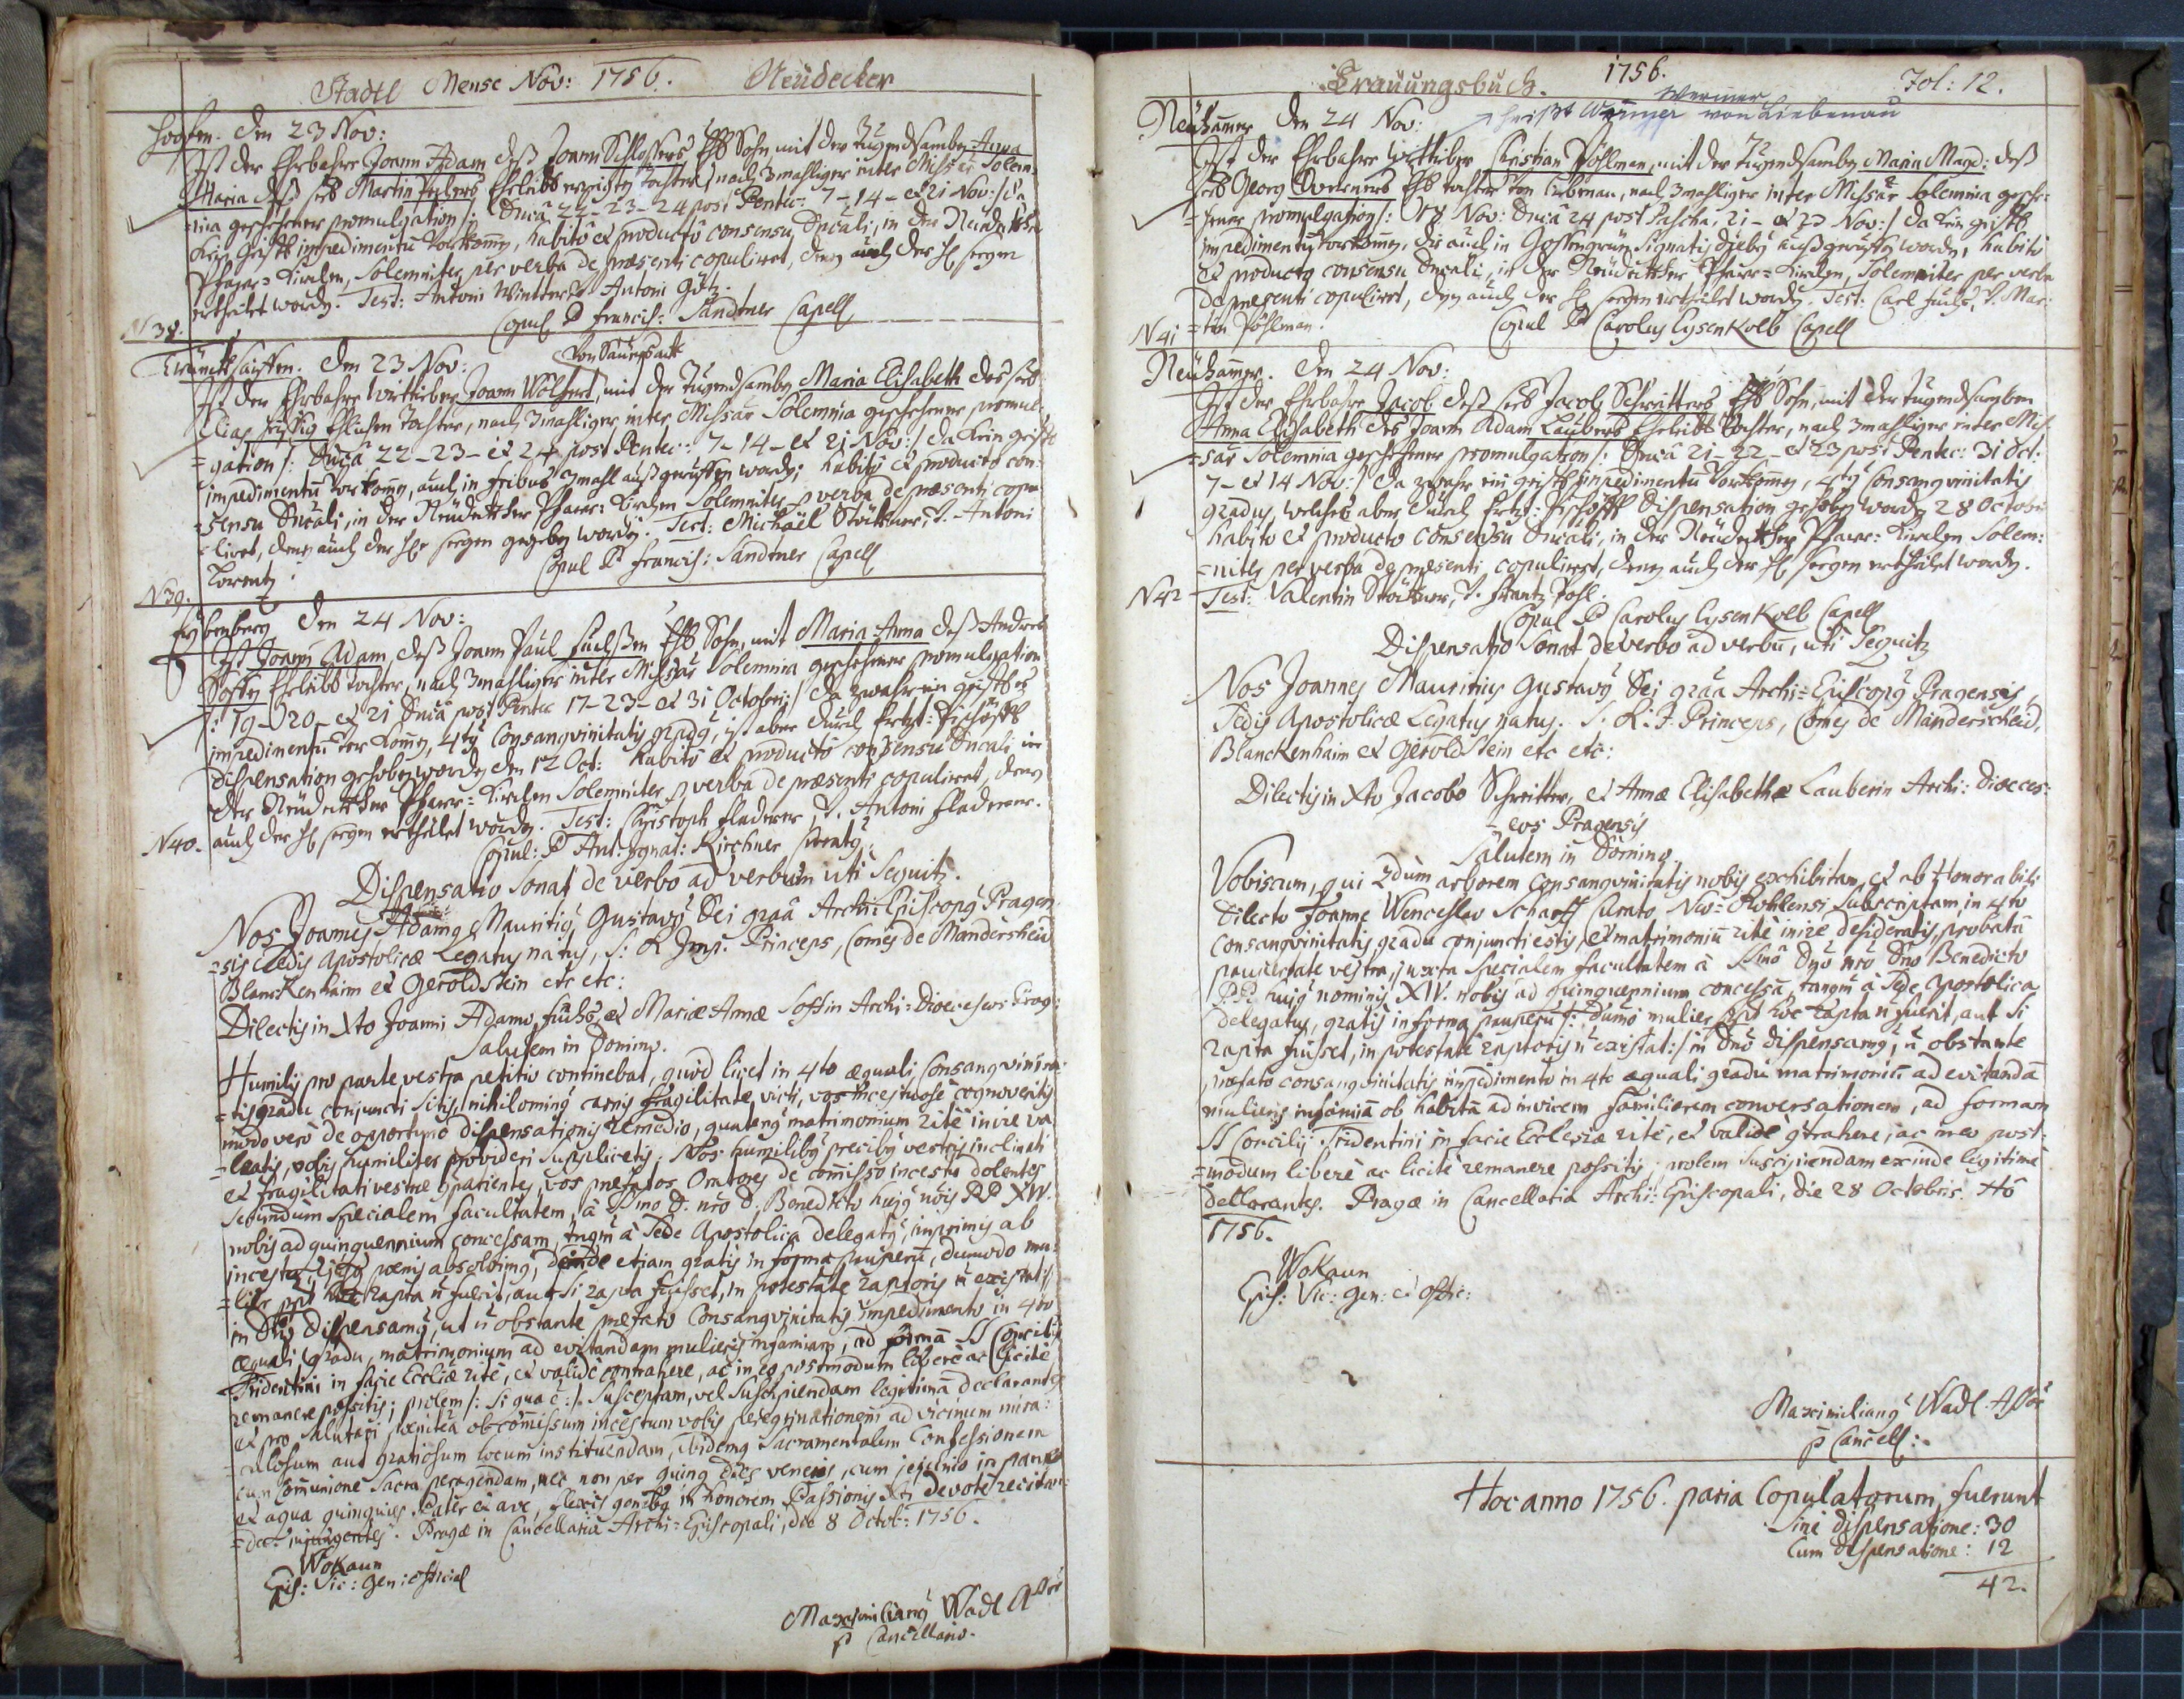 Stadtl Mense Nov: 1756. Neudecker
den 23 Nov:
Ist der Ehrbahre Joann Adam deß Joann Schlossers Ehl. Sohn mit der Tugendsamben Anna
Maria deß Martin Ehrleibl. Tochter, nach 3mahliger inter Missar Solem-
=nia geschehener promulgation /: Dnica 22-23-24 post Pentec: 7-14- et 21 Nov: /: da
kein geistl impedimentum Vorkommen, habito et producto consensu Ducali, in der Neudeckher
Pfarr=Kirchen, Solemniter per verba de praesenti copuliret, denen auch der hl Seegen
ertheilet worden. Test: Antoni Antoni Götz.
N 38. Copul P Francis: Sandtner Capell
den 23 Nov: Von Sauersack
Ist der Ehrbahre Wittiber Joann Wölfert, mit der Tugendsamben Maria Elisabeth des
Elias Ehlichen Tochter, nach 3mahliger inter Missar Solemnia geschehener promul-
=gation /: Dnica 22-23- et 24 post Pentec: 7-14- et 21 Nov: /: da kein geistl
impedimentum vorkommen, auch in 3mahl außgeruffen worden; habito et producto con-
=sensu Ducali, in der Neudeckher Pfarr=Kirchen Solemniter p verba de praesenti copu
=liret, denen auch der hle Seegen gegeben worden. Test: Michaël Stöckner, v. Antoni
Lorentz.
N39. Copul P Francis: Sandtner Capell
den 24 Nov:
Ist Joann Adam, deß Joann Paul Fuchsen Ehl Sohn, mit Maria Anna deß Andres
Ehrleibl Tochter, nach 3mahliger inter Missar Solemnia geschehener promulgation
/: 19-20- et 21 Dnica post Pentec 17-23- et 31 Octobris /: da zwahr ein geistl
impedimentum vor kommen, 4ti Consangvinitatis gradus, ist aber durch Ertzb: Bischöffl
dispensation gehoben worden den 12 Oct: habito et producto consensu Ducali in
der Neudeckher Pfarr=Kirchen Solemniter p verba de praesenti copuliret, denen
auch der hl Seegen ertheilet worden. Test: Christoph Fladerer, v. Antoni Fladerer.
N40. Copul: P Ant: Ignat: Kirchner
Dispensatio Sonat de verbo ad verbum uti Sequitr.
Nos Joannes Adamus Mauritius Gustavus Dei graa Archi-Episcopus Pragen
=sis Sedis Apostolicae Legatus natus, S: R Imp: Princeps, Comes de Mandersheid
Blanckenhaim et Geroldstein etc etc:
Dilectis in Xto Joanni Adamo Fuchs, et Mariae Annae Archi-Dioeceseos Prag:
Salutem in Domino.
Humilis pro parte vestra petitio continebat, quod licet in 4to aequali Consangvinita
=tis gradu conjuncti sitis, nihilominus carnis fragilitate victi, vos incestuose cognoveritis
modo vero de opportuno dispensationis remedio, quatenus matrimonium rite inire va
=leatis, vobis humiliter provideri supplicetis; Nos humilibus precibus vestris inclinati
et fragilitati vestrae compatientes, vos praefatos Oratores de comisso incestu dolentes
secundum specialem facultatem, à SSmo D: nro D. Benedicto hujus nois PP XIV.
nobis ad quinquennium concessam, tnqm à Sede Apostolica delegatus, imprimis ab
incestu, poenis absolvimus, deinde etiam gratis in forma pauperum, dummodo mu-
=lier hoc rapta non fuerit, aut si rapta fuisset, in potestate raptoris non existat /:
in Dno dispensamus, ut non obstante praefato Consangvinitatis impedimento in 4to
aequali gradu, matrimonium ad evitandam mulieris infamiam, ad formam SS Concilij
Tridentini in facie Ecclae rite, et valide contrahere, ac in eo postmodum libere ac licite
remanere possitis; prolem /: si qua e: /: susceptam, vel suscipiendam legitimam declarantes
et pro salutari poenitentia ob comissum incestum vobis peregrinationem ad vicinum mira:
culosum aut gratiosum locum instituendam, ibidemq Sacramentalem Confessionem
cum Comunione Sacra peragendam, nec non per quinq dies veneris, cum jejunio in pane
et aqua quinquies Pater et ave, flexis genibus in honorem Passionis Xti devote recitan:
=da injungentes. Pragae in Cancellaria Archi-Episcopali, die 8 Octob: 1756.
Wokaun
Epis: Vic: gen: official
Maximilianus Wadl
p Cancellario.
Trauungsbuch. 1756. Fol: 12.
Werner
heißt Werner von Liebenau
Neuhammer den 24 Nov:
Ist der Ehrbahre Wittiber Christian Pöhlman, mit der Tugendsamben Maria Magd: deß
Georg Werners Ehl Tochter von Liebenau, nach 3mahliger inter Missar Solemnia gesche:
=hener promulgation /: 18 Nov: Dnica 24 post Pascha, 21- et 23 Nov: / da kein geistl
impedimentum vorkommen, die auch in Gossengrün Signatis diebus außgeruffen worden, habito
et producto consensu Ducali, in der Neudeckher Pfarr=Kirchen, Solemniter per verba
de praesenti copuliret, denen auch der hl Seegen ertheilet worden. Test: Carl Fuchs, v. Mar:
N41 =tin Pöhlman. Copul P Carolus Eysenkolb Capell
Neuhammer. den 24 Nov:
Ist der Ehrbahre Jacob deß Jacob Schreitters Ehl Sohn, mit der Tugendsamben
Anna Elisabeth des Joann Adam Laubers Ehrleibl Tochter, nach 3mahliger inter Mis-
=sar Solemnia geschehener promulgation /: Dnica 21-22- et 23 post Pentec: 31 Oct:
7- et 14 Nov: / da zwahr ein geistl impedimentum vorkommen, 4ti Consangvinitatis
gradus, welches aber durch Ertzb: Bischöffl Dispensation gehoben worden 28 Octobr
habito et producto consensu Ducali, in der Neudeckher Pfarr=Kirchen Solem:
=niter per verba de praesenti copuliret, denen auch der hl Seegen ertheilet worden.
N42 Test: Valentin Stöckner, v. Frantz Pohl.
Copul P Carolus Eysenkolb Capell
Dispensatio Sonat de verbo ad verbum, uti Sequitr
Nos Joannes Mauritius Gustavus Dei graa Archi-Episcopus Pragensis,
Sedis Apostolicae Legatus natus. S. R. I. Princeps, Comes de Manderscheid,
Blanckenhaim et Geroldstein etc etc:
Dilectis in Xto Jacobo Schreitter, et Annae Elisabethae Lauberin Archi: Dioeces:
=eos Pragensis
Salutem in Domino.
Vobiscum, qui 2dum arborem consangvinitatis nobis exhibitam, et ab Honorabili
Dilecto Joanne Wenceslao Scharff Curato Neo-Rohlensi subscriptam, in 4to
consangvinitatis gradu conjuncti estis, et matrimonium rite inire desideratis, probata
paupertate vestra, juxta specialem facultatem à SSmo Dno nro Dno Benedicto
P.P. hujus nominis XIV. nobis ad quinquennium concessa, tanqm à Sede Apostolica
delegatus, gratis in forma pauperum /: dumo mulier hoc rapta non fuerit, aut si
rapta fuisset, in potestate raptoris non existat: / in Dno dispensamus, non obstante
praefato consangvinitatis impedimento in 4to aequali gradu matrimonium ad evitandam
mulieris infamiam ob habitam ad invicem familiarem conversationem, ad formam
SS Concilij Tridentini in facie Ecclesiae rite, et valide contrahere, ac in eo post-
=modum libere ac licite remanere possitis; prolem suscipiendam exinde legitimam
declarantes. Pragae in Cancellaria Archi-Episcopali, die 28 Octobris
1756.
Wokaun
Epis: Vic: gen: et offic:
Maximilianus Wadl
p Cancell:
Hoc anno 1756. paria Copulatorum, fuerunt
Sine dispensatione: 30
Cum dispensatione: 12
42.